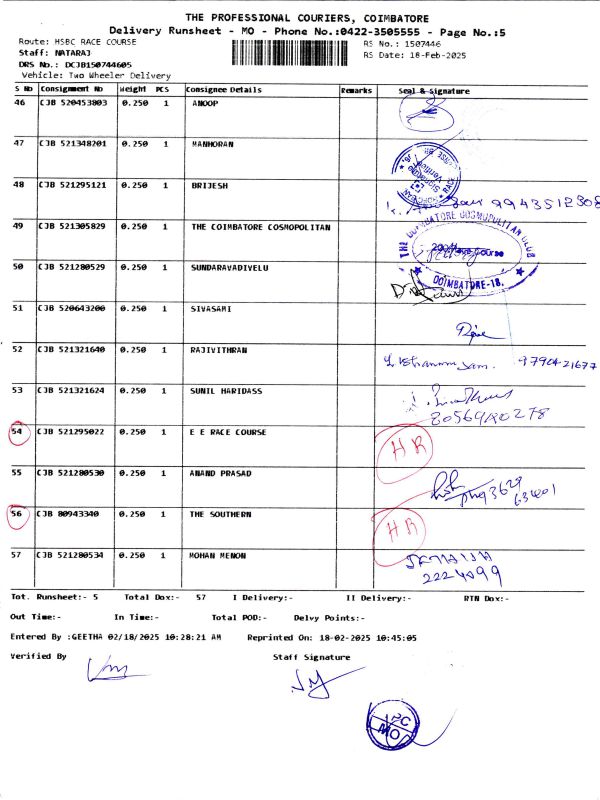 THE PROFESSIONAL COURIERS, COIMBATORE
Delivery Runsheet - MO - Phone No.:0422-3505555 - Page No.:5
Route: HSBC RACE COURSE RS No.: 1507446
Staff: NATARAJ RS Date: 18-Feb-2025
DRS No.: DCJB150744605
Vehicle: Two Wheeler Delivery
S No Consignment No Weight PCS Consignee Details Remarks Seal & Signature
46 CJB 520453803 0.250 1 ANOOP
47 CJB 521348201 0.250 1 MANHORAN
48 CJB 521295121 0.250 1 BRIJESH
9943512308
49 CJB 521305829 0.250 1 THE COIMBATORE COSMOPOLITAN
THE COIMBATORE COSMOPOLITAN CLUB
Race Course
COIMBATORE-18.
50 CJB 521280529 0.250 1 SUNDARAVADIVELU
51 CJB 520643200 0.250 1 SIVASAMI
52 CJB 521321640 0.250 1 RAJIVITHRAN
9790421677
53 CJB 521321624 0.250 1 SUNIL HARIDASS
54 CJB 521295022 0.250 1 E E RACE COURSE HR
55 CJB 521280530 0.250 1 ANAND PRASAD
56 CJB 80943340 0.250 1 THE SOUTHERN HR
57 CJB 521280534 0.250 1 MOHAN MENON
2224099
Tot. Runsheet:- 5 Total Dox:- 57 I Delivery:- II Delivery:- RTN Dox:-
Out Time:- In Time:- Total POD:- Delvy Points:-
Entered By :GEETHA 02/18/2025 10:28:21 AM Reprinted On: 18-02-2025 10:45:05
Verified By Staff Signature
MO